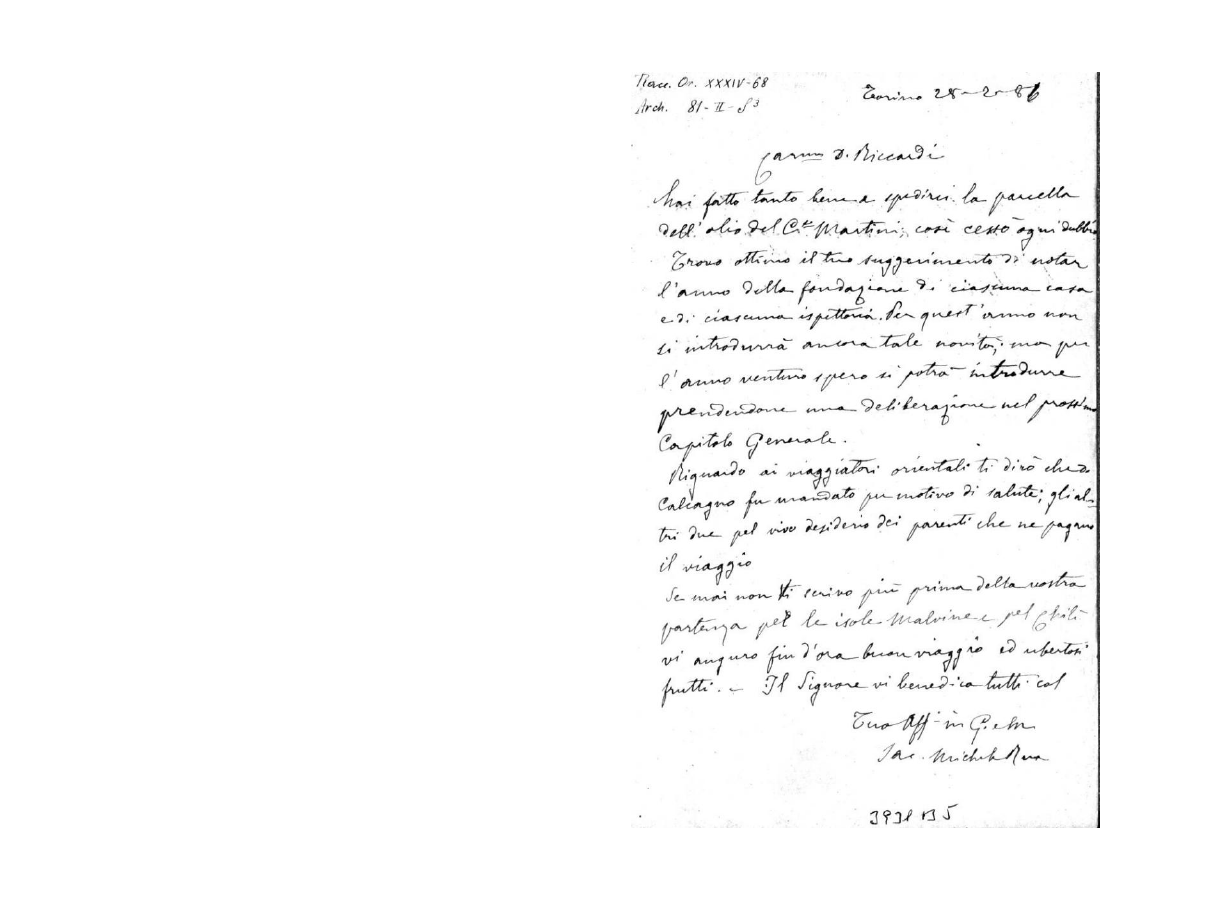 Racc. Or. XXXIV-68
Arch. 81-II-S³
Torino 28-2-86
Carmo D. Riccardi
Hai fatto tanto bene a spedirci la parcella
dell'olio del Cte Martini; così cessò ogni dubbio
Trovo ottimo il tuo suggerimento di notar
l'anno della fondazione di ciascuna casa
e di ciascuna ispettoria. Per quest'anno non
si introdurrà ancora tale novità; ma per
l'anno venturo spero si potrà introdurre
prendendone una deliberazione nel prossimo
Capitolo Generale.
Riguardo ai viaggiatori orientali ti dirò che
Calcagno fu mandato per motivo di salute; gli al-
tri due pel vivo desiderio dei parenti che ne pagano
il viaggio
Se mai non ti scrivo più prima della vostra
partenza pel le isole Malvine e pel Chilì
vi auguro fin d'ora buon viaggio ed ubertosi
frutti. – Il Signore vi benedica tutti col
Tuo Aff. in G. e M.
Sac. Michele Rua
3931 B 5